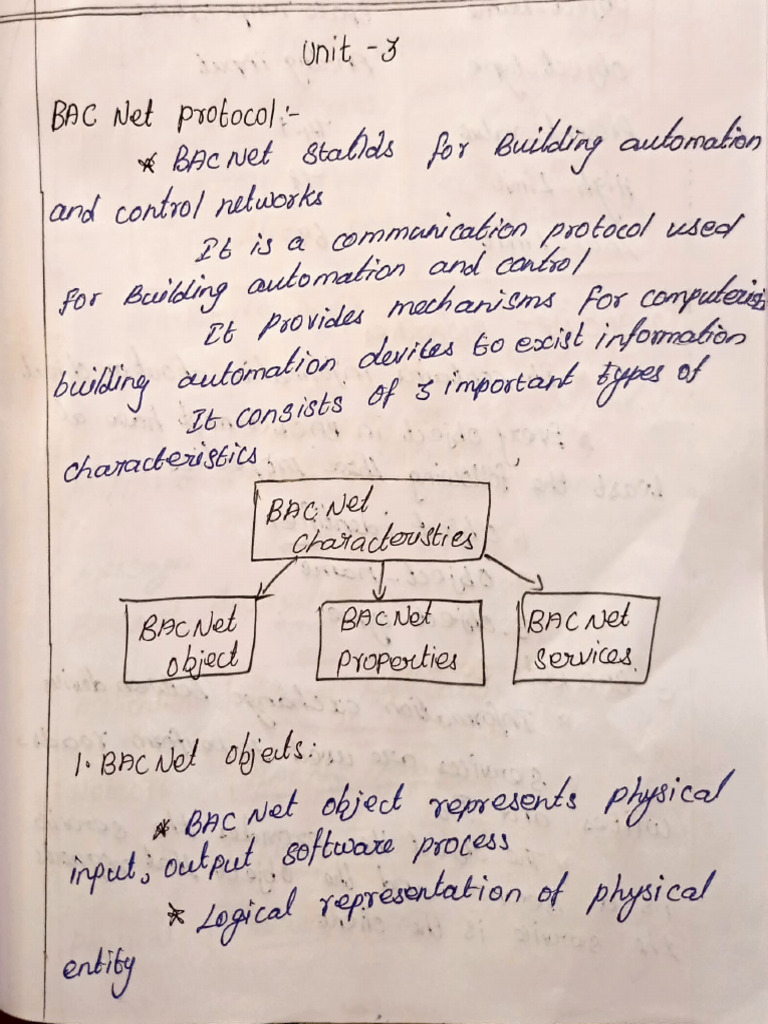 Unit - 3
BAC Net protocol:-
* BACNet stands for Building automation
and control networks
It is a communication protocol used
for Building automation and control
It provides mechanisms for computeris
building automation devices to exist information
It consists of 3 important types of
characteristics.
BAC Net
characteristics
BACNet
object
BACNet
properties
BACNet
services.
1. BACNet objects:
* BACNet object represents physical
input, output software process
* Logical representation of physical
entity